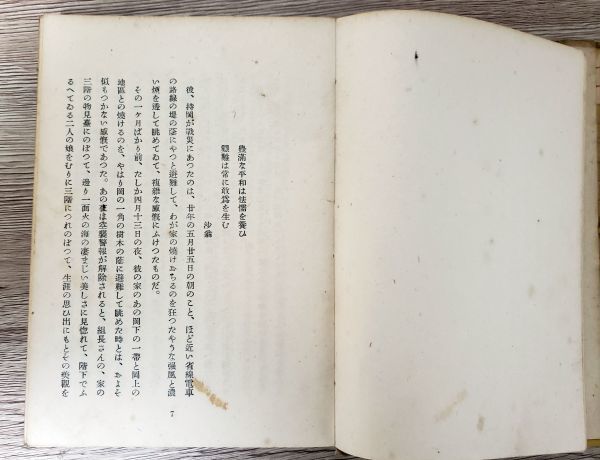 豊満な平和は怯懦を養ひ
艱難は常に敢爲を生む
沙翁
後、持岡が戰災にあつたのは、廿年の五月廿五日の朝のこと、ほど近い省線電車
の路線の堤の蔭にやつと避難して、わが家の燒けおちるのを狂つたやうな强風と濃
い煙を透して眺めてゐて、複雜な感慨にふけつたものだ。
その一ケ月ばかり前、たしか四月十三日の夜、彼の家のあの岡下の一帶と岡上の
地區との燒けるのを、やはり岡の一角の樹木の蔭に避難して眺めた時とは、およそ
似もつかない感慨であつた。あの夜は空襲警報が解除されると、組長さんの、家の
三階の物見臺にのぼつて、邊り一面火の海の凄まじい美しさに見惚れて、階下でふ
るへてゐる二人の娘をむりに三階につれのぼつて、生涯の思ひ出にもとその美觀を
7